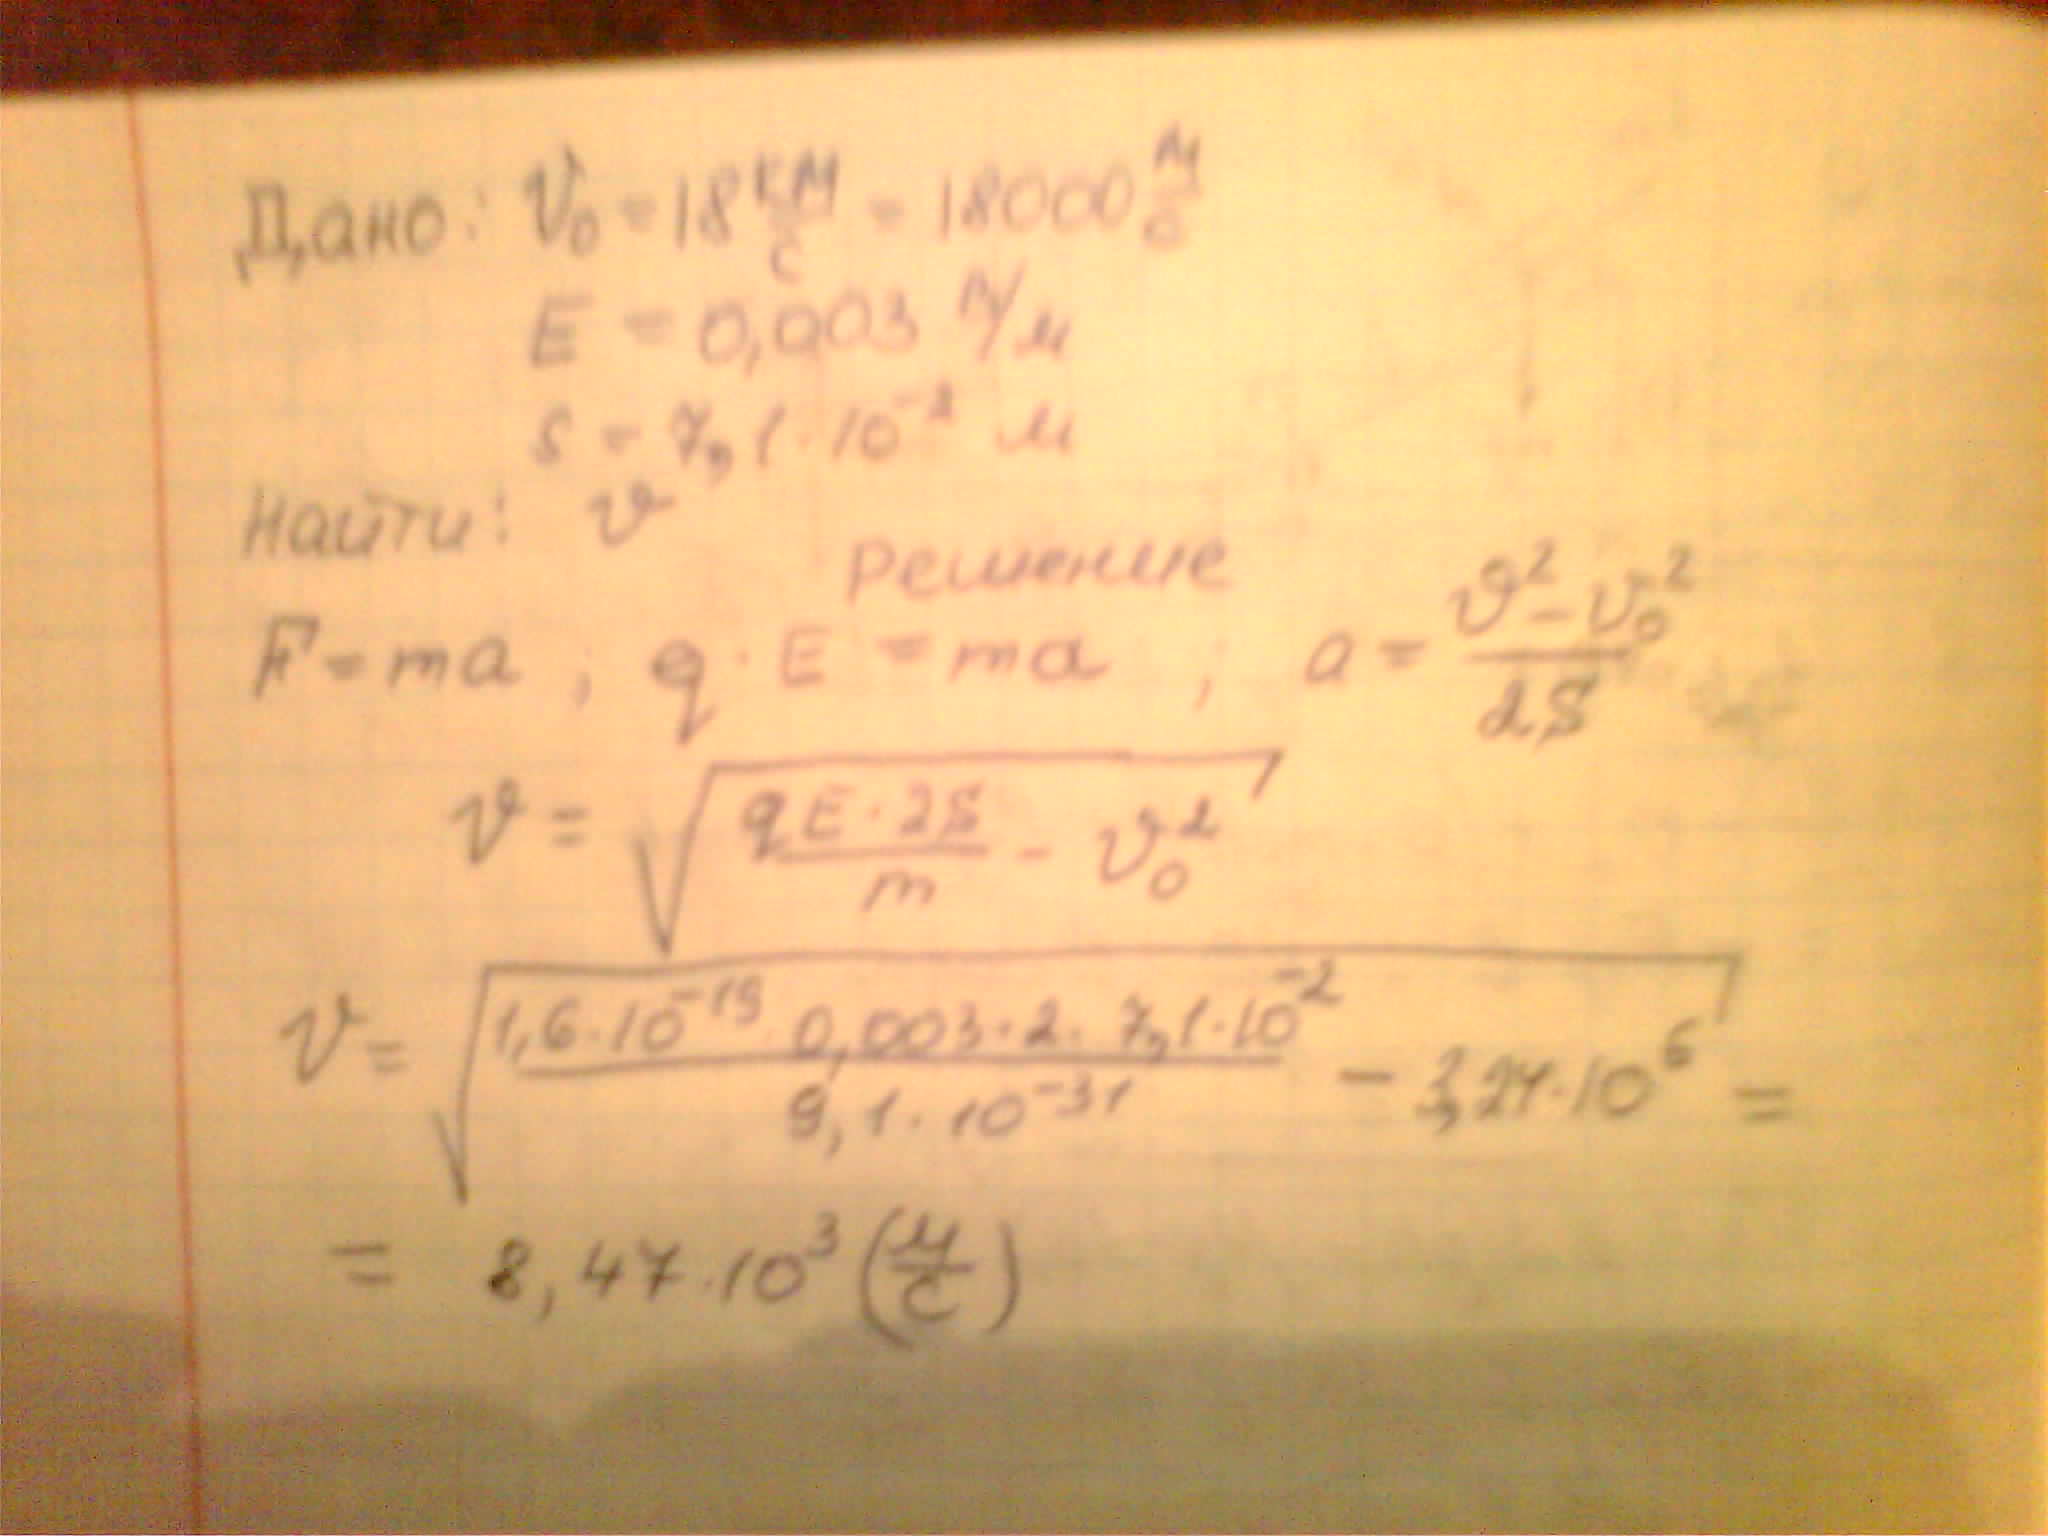 Дано: v₀ = 18 км/с = 18000 м/с
E = 0,003 н/м
S = 7,1·10⁻² м
Найти: v
Решение
F = ma ; q·E = ma ; a = (v² - v₀²)/2S
v = √(qE·2S/m - v₀²)
v = √(1,6·10⁻¹⁹ 0,003·2·7,1·10⁻²/9,1·10⁻³¹ - 3,24·10⁶) =
= 8,47·10³ (м/с)